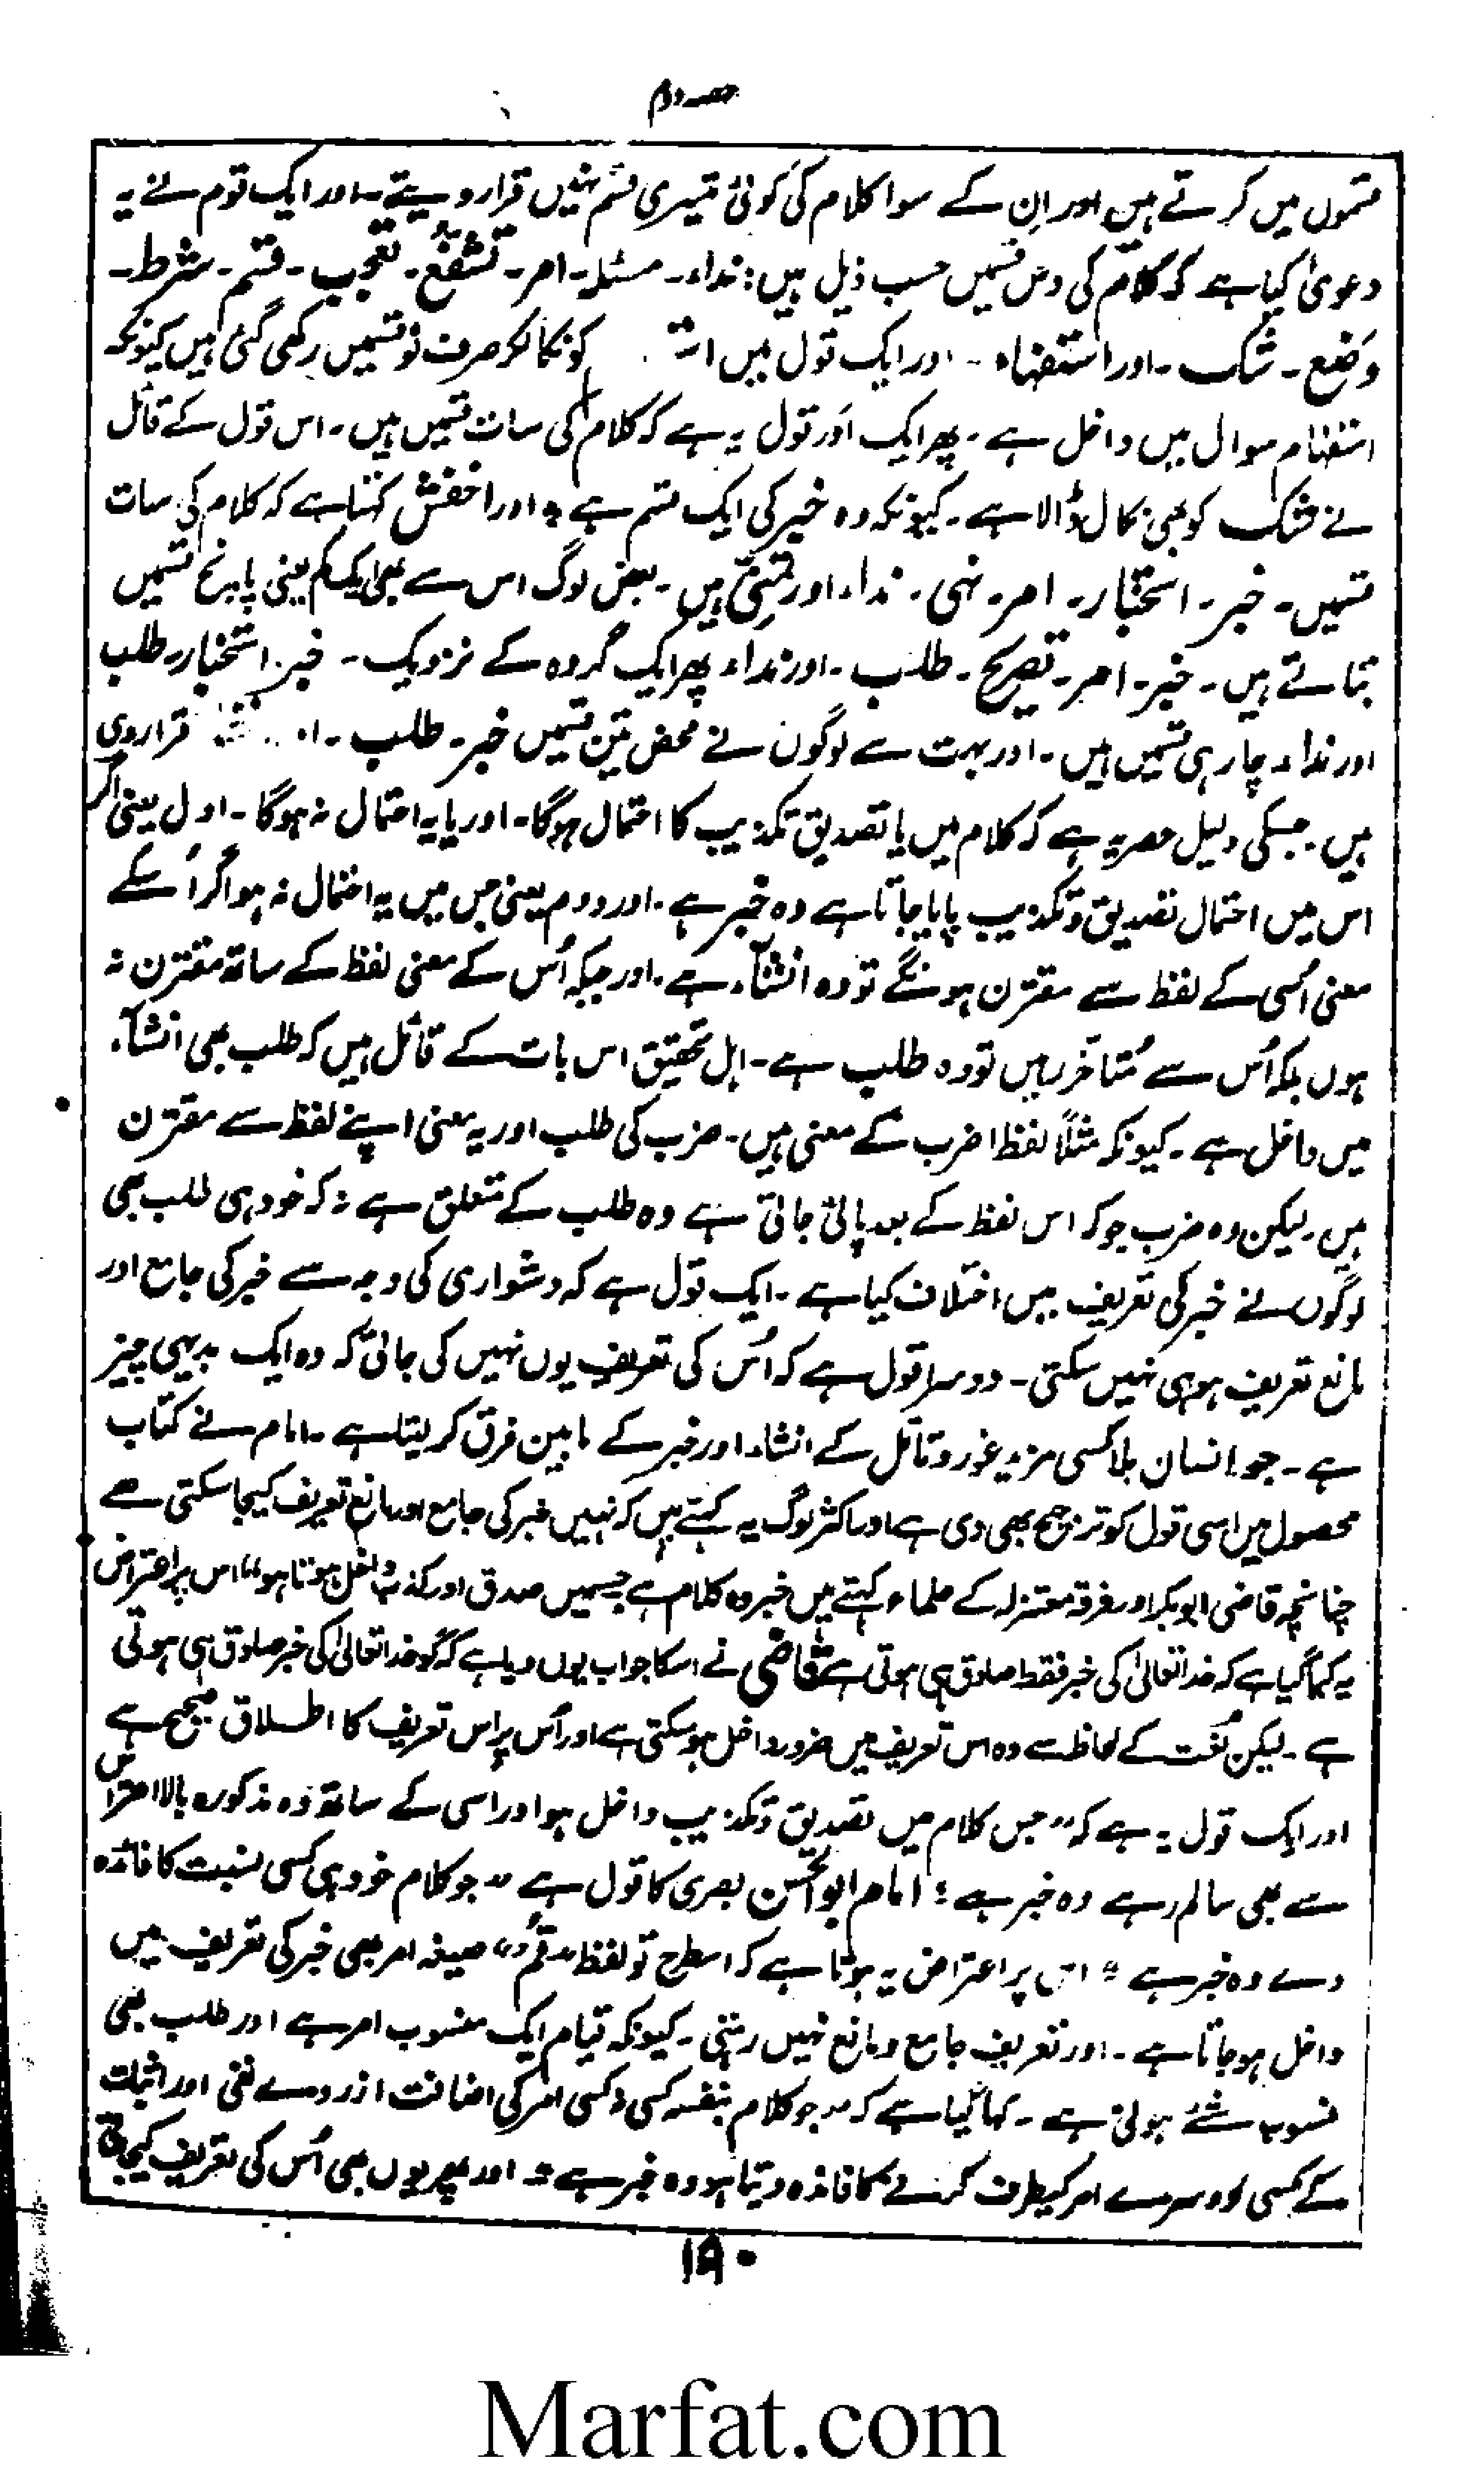 حصہ دوم
قسموں میں کرتے ہیں اور ان کے سوا کلام کی کوئی تیسری قسم نہیں قرار دیتے۔ اور ایک قوم نے یہ
دعویٰ کیا ہے کہ کلام کی دس قسمیں حسب ذیل ہیں: نداء۔ مسئلہ۔ امر۔ تشفّع۔ تعجب۔ قسم۔ شرط۔
وَضع۔ شک۔ اور استفہام۔ اور ایک قول میں کو نکالکر صرف نو قسمیں رکھی گئی ہیں کیونکہ
استفہام سوال میں داخل ہے۔ پھر ایک اَور قول یہ ہے کہ کلام کی سات قسمیں ہیں۔ اس قول کے قائل
نے شک کو بھی نکال ڈالا ہے۔ کیونکہ وہ خبر کی ایک قسم ہے؛ اور اخفش کہتا ہے کہ کلام کی سات
قسمیں۔ خبر۔ استخبار۔ امر۔ نہی۔ نداء اور تمنّی ہیں۔ بعض لوگ اس سے بھی ایک کم یعنی پانچ قسمیں
بتاتے ہیں۔ خبر۔ امر۔ تصریح۔ طلب۔ اور نداء پھر ایک گروہ کے نزدیک۔ خبر۔ استخبار۔ طلب
اور نداء چار ہی قسمیں ہیں۔ اور بہت سے لوگوں نے محض تین قسمیں خبر۔ طلب۔ قرار دی
ہیں۔ جسکی دلیل حصر یہ ہے کہ کلام میں یا تصدیق تکذیب کا احتمال ہوگا۔ اور یا یہ احتمال نہ ہوگا۔ اول یعنی اگر
اس میں احتمال تصدیق و تکذیب پایا جاتا ہے وہ خبر ہے۔ اور دوم یعنی جس میں یہ احتمال نہ ہو اگر اُسکے
معنی اُسی کے لفظ سے مقترن ہونگے تو وہ انشآء ہے۔ اور جبکہ اُس کے معنی لفظ کے ساتھ مقترن نہ
ہوں بلکہ اُس سے مُتاَخر ہیں تو وہ طلب ہے۔ اہل تحقیق اس بات کے قائل ہیں کہ طلب بھی انشآء
میں داخل ہے۔ کیونکہ مثلاً لفظ اضرب کے معنی ہیں۔ ضرب کی طلب اور یہ معنی اپنے لفظ سے مقترن
ہیں۔ لیکن وہ ضرب جو کہ اس لفظ کے بعد پائی جاتی ہے وہ طلب کے متعلق ہے نہ کہ خود ہی طلب بھی
لوگوں نے خبر کی تعریف میں اختلاف کیا ہے۔ ایک قول ہے کہ دشواری کی وجہ سے خبر کی جامع اور
مانع تعریف ہو ہی نہیں سکتی۔ دوسرا قول ہے کہ اُس کی تعریف یوں نہیں کی جاتی کہ وہ ایک بدیہی چیز
ہے۔ جو انسان بلا کسی مزید غور و تأمل کے انشاء اور خبر کے مابین فرق کر لیتا ہے۔ امام نے کتاب
محصول میں اسی قول کو ترجیح بھی دی ہے اور اکثر لوگ یہ کہتے ہیں کہ نہیں خبر کی جامع اور مانع تعریف کیجا سکتی ہے
چنانچہ قاضی ابوبکر اور فرقہ معتزلہ کے علماء کہتے ہیں خبر وہ کلام ہے جسمیں صدق اور کذب داخل ہوتا ہو“ اس پر اعتراض
یہ کہا گیا ہے کہ خدا تعالیٰ کی خبر فقط صادق ہی ہوتی ہے قاضی نے اسکا جواب یوں دیا ہے کہ گو خدا تعالیٰ کی خبر صادق ہی ہوتی
ہے۔ لیکن لُغت کے لحاظ سے وہ اس تعریف میں ضرور داخل ہو سکتی ہے اور اُس پر اس تعریف کا اطلاق صحیح ہے
اور ایک قول یہ ہے کہ ”جس کلام میں تصدیق و تکذیب داخل ہو اور اسی کے ساتھ وہ مذکورہ بالا اعتراض
سے بھی سالم رہے وہ خبر ہے؛ امام ابوالحسن بصری کا قول ہے ”جو کلام خود ہی کسی نسبت کا فائدہ
دے وہ خبر ہے“ اس پر اعتراض یہ ہوتا ہے کہ اسطرح تو لفظ ”قُم“ صیغہ امر بھی خبر کی تعریف میں
داخل ہو جاتا ہے۔ اور تعریف جامع و مانع نہیں رہتی۔ کیونکہ قیام ایک منسوب امر ہے اور طلب بھی
منسوب شئے ہوتی ہے۔ کہا گیا ہے کہ ”جو کلام بنفسہ کسی نہ کسی امر کی اضافت ازروے نفی اور اثبات
کے کسی دوسرے امر کیطرف کرنے کا فائدہ دیتا ہو وہ خبر ہے“ اور پھر یوں بھی اُس کی تعریف کیجاتی
۱۹۰
Marfat.com